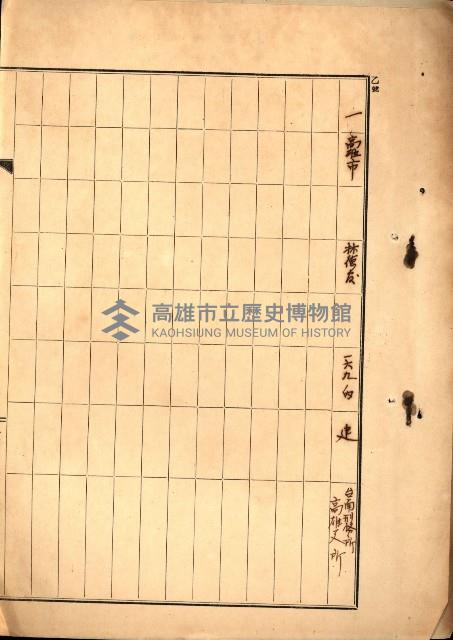 乙號
一 高雄市 林德友 一六九 的 建
台南刑務所
高雄支所
高雄市立歷史博物館
KAOHSIUNG MUSEUM OF HISTORY